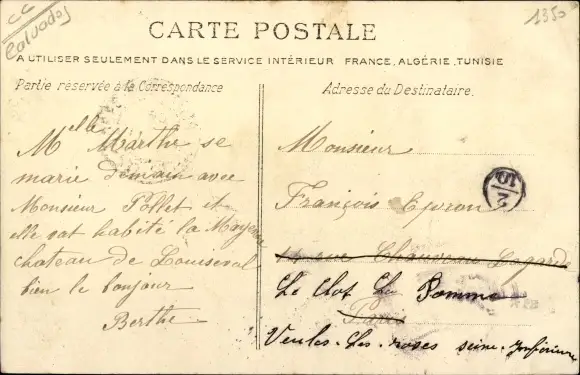 CC
Calvados
1350
CARTE POSTALE
A UTILISER SEULEMENT DANS LE SERVICE INTÉRIEUR FRANCE, ALGÉRIE, TUNISIE
Partie réservée à la Correspondance
Adresse du Destinataire.
Melle Marthe se
marie demain avec
Monsieur Pollet et
elle vat habité la Mayenne
chateau de
bien le bonjour
Berthe
Monsieur
François
2
10
rue Chauveau Lagarde
Le Clos La Pomme
Paris
Veules-les-roses seine-Inférieure